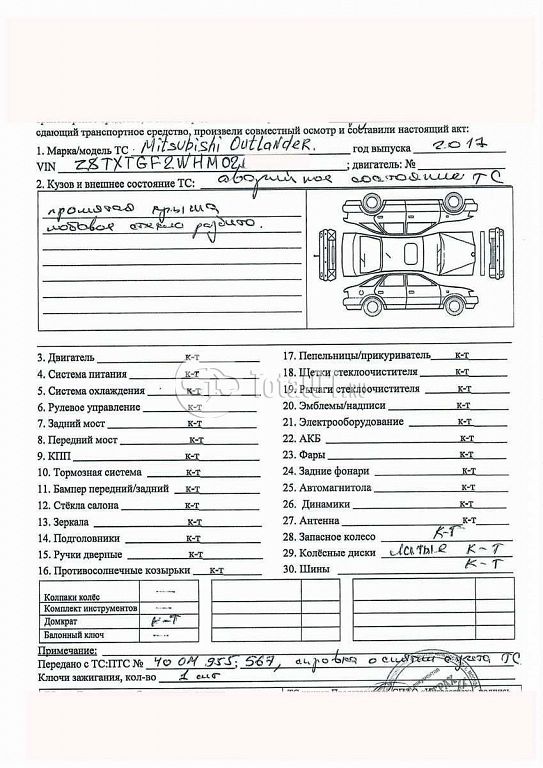 сдающий транспортное средство, произвели совместный осмотр и составили настоящий акт:
1. Марка/модель ТС Mitsubishi Outlander. год выпуска 2017
VIN Z8TXTGF2WHM021 ; двигатель: №
2. Кузов и внешнее состояние ТС: аварийное состояние ТС
промятая крыша
лобовое стекло разбито.
3. Двигатель к-т
4. Система питания к-т
5. Система охлаждения к-т
6. Рулевое управление к-т
7. Задний мост к-т
8. Передний мост к-т
9. КПП к-т
10. Тормозная система к-т
11. Бампер передний/задний к-т
12. Стёкла салона к-т
13. Зеркала к-т
14. Подголовники к-т
15. Ручки дверные к-т
16. Противосолнечные козырьки к-т
17. Пепельницы/прикуриватель к-т
18. Щетки стеклоочистителя к-т
19. Рычаги стеклоочистителя к-т
20. Эмблемы/надписи к-т
21. Электрооборудование к-т
22. АКБ к-т
23. Фары к-т
24. Задние фонари к-т
25. Автомагнитола к-т
26. Динамики к-т
27. Антенна к-т
28. Запасное колесо к-т
29. Колёсные диски литые к-т
30. Шины к-т
Колпаки колёс —
Комплект инструментов —
Домкрат к-т
Балонный ключ —
Примечание:
Передано с ТС:ПТС № 40 ОМ 955567, справка о снятии с учета ТС
Ключи зажигания, кол-во 1 шт